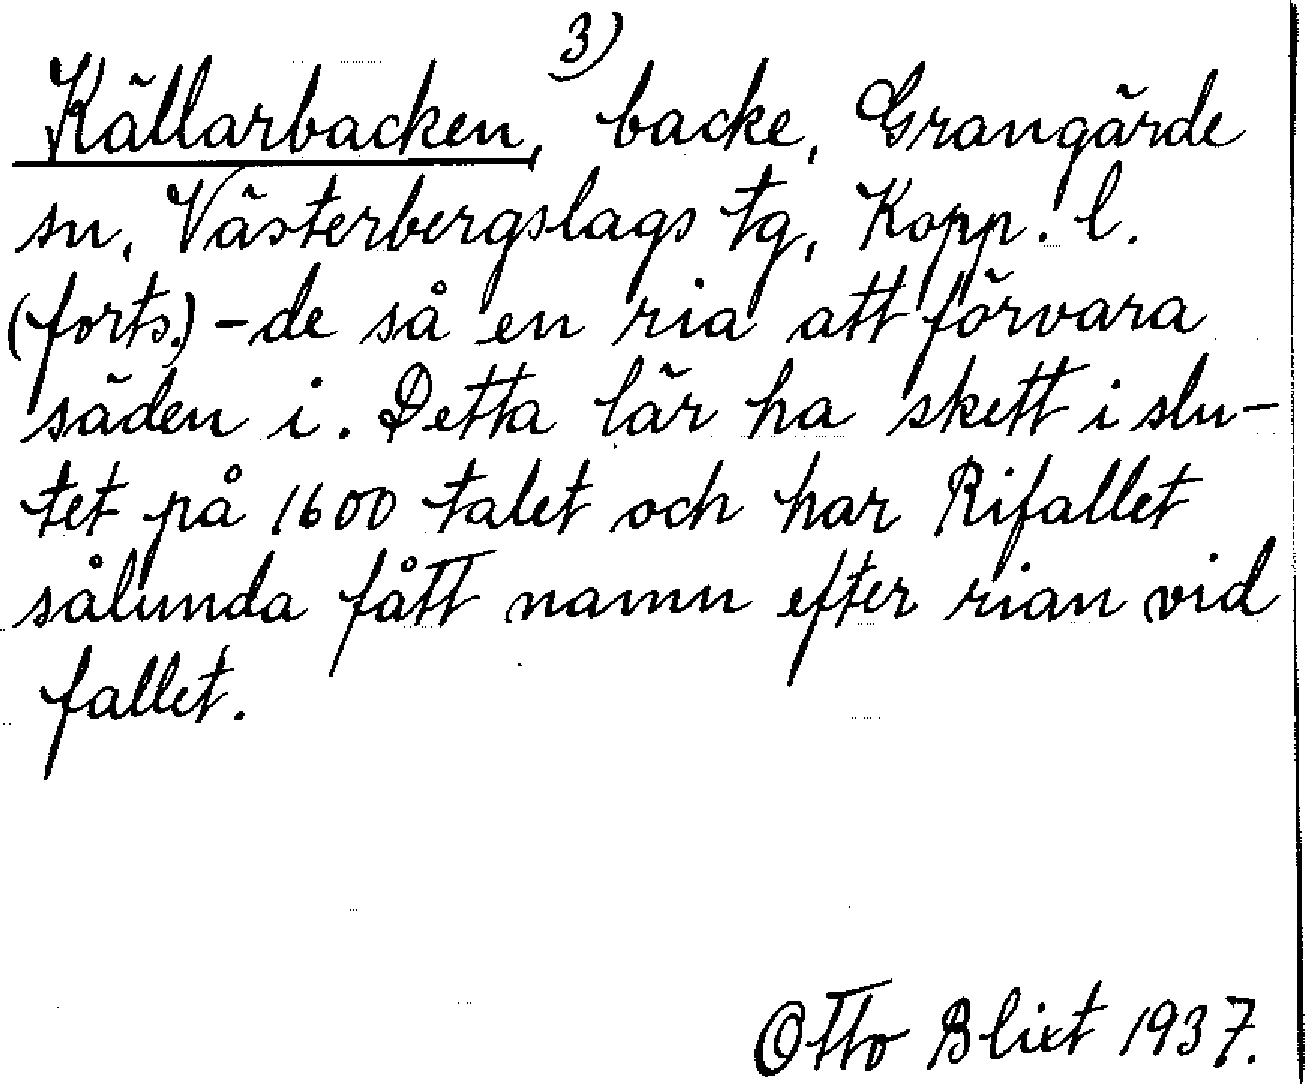 3)
Källarbacken, backe, Grangärde
sn, Västerbergslags tg, Kopp. l.
(forts.) - de så en ria att förvara
säden i. Detta lär ha skett i slu-
tet på 1600 talet och har Rifallet
sålunda fått namn efter rian vid
fallet.
Otto Blixt 1937.